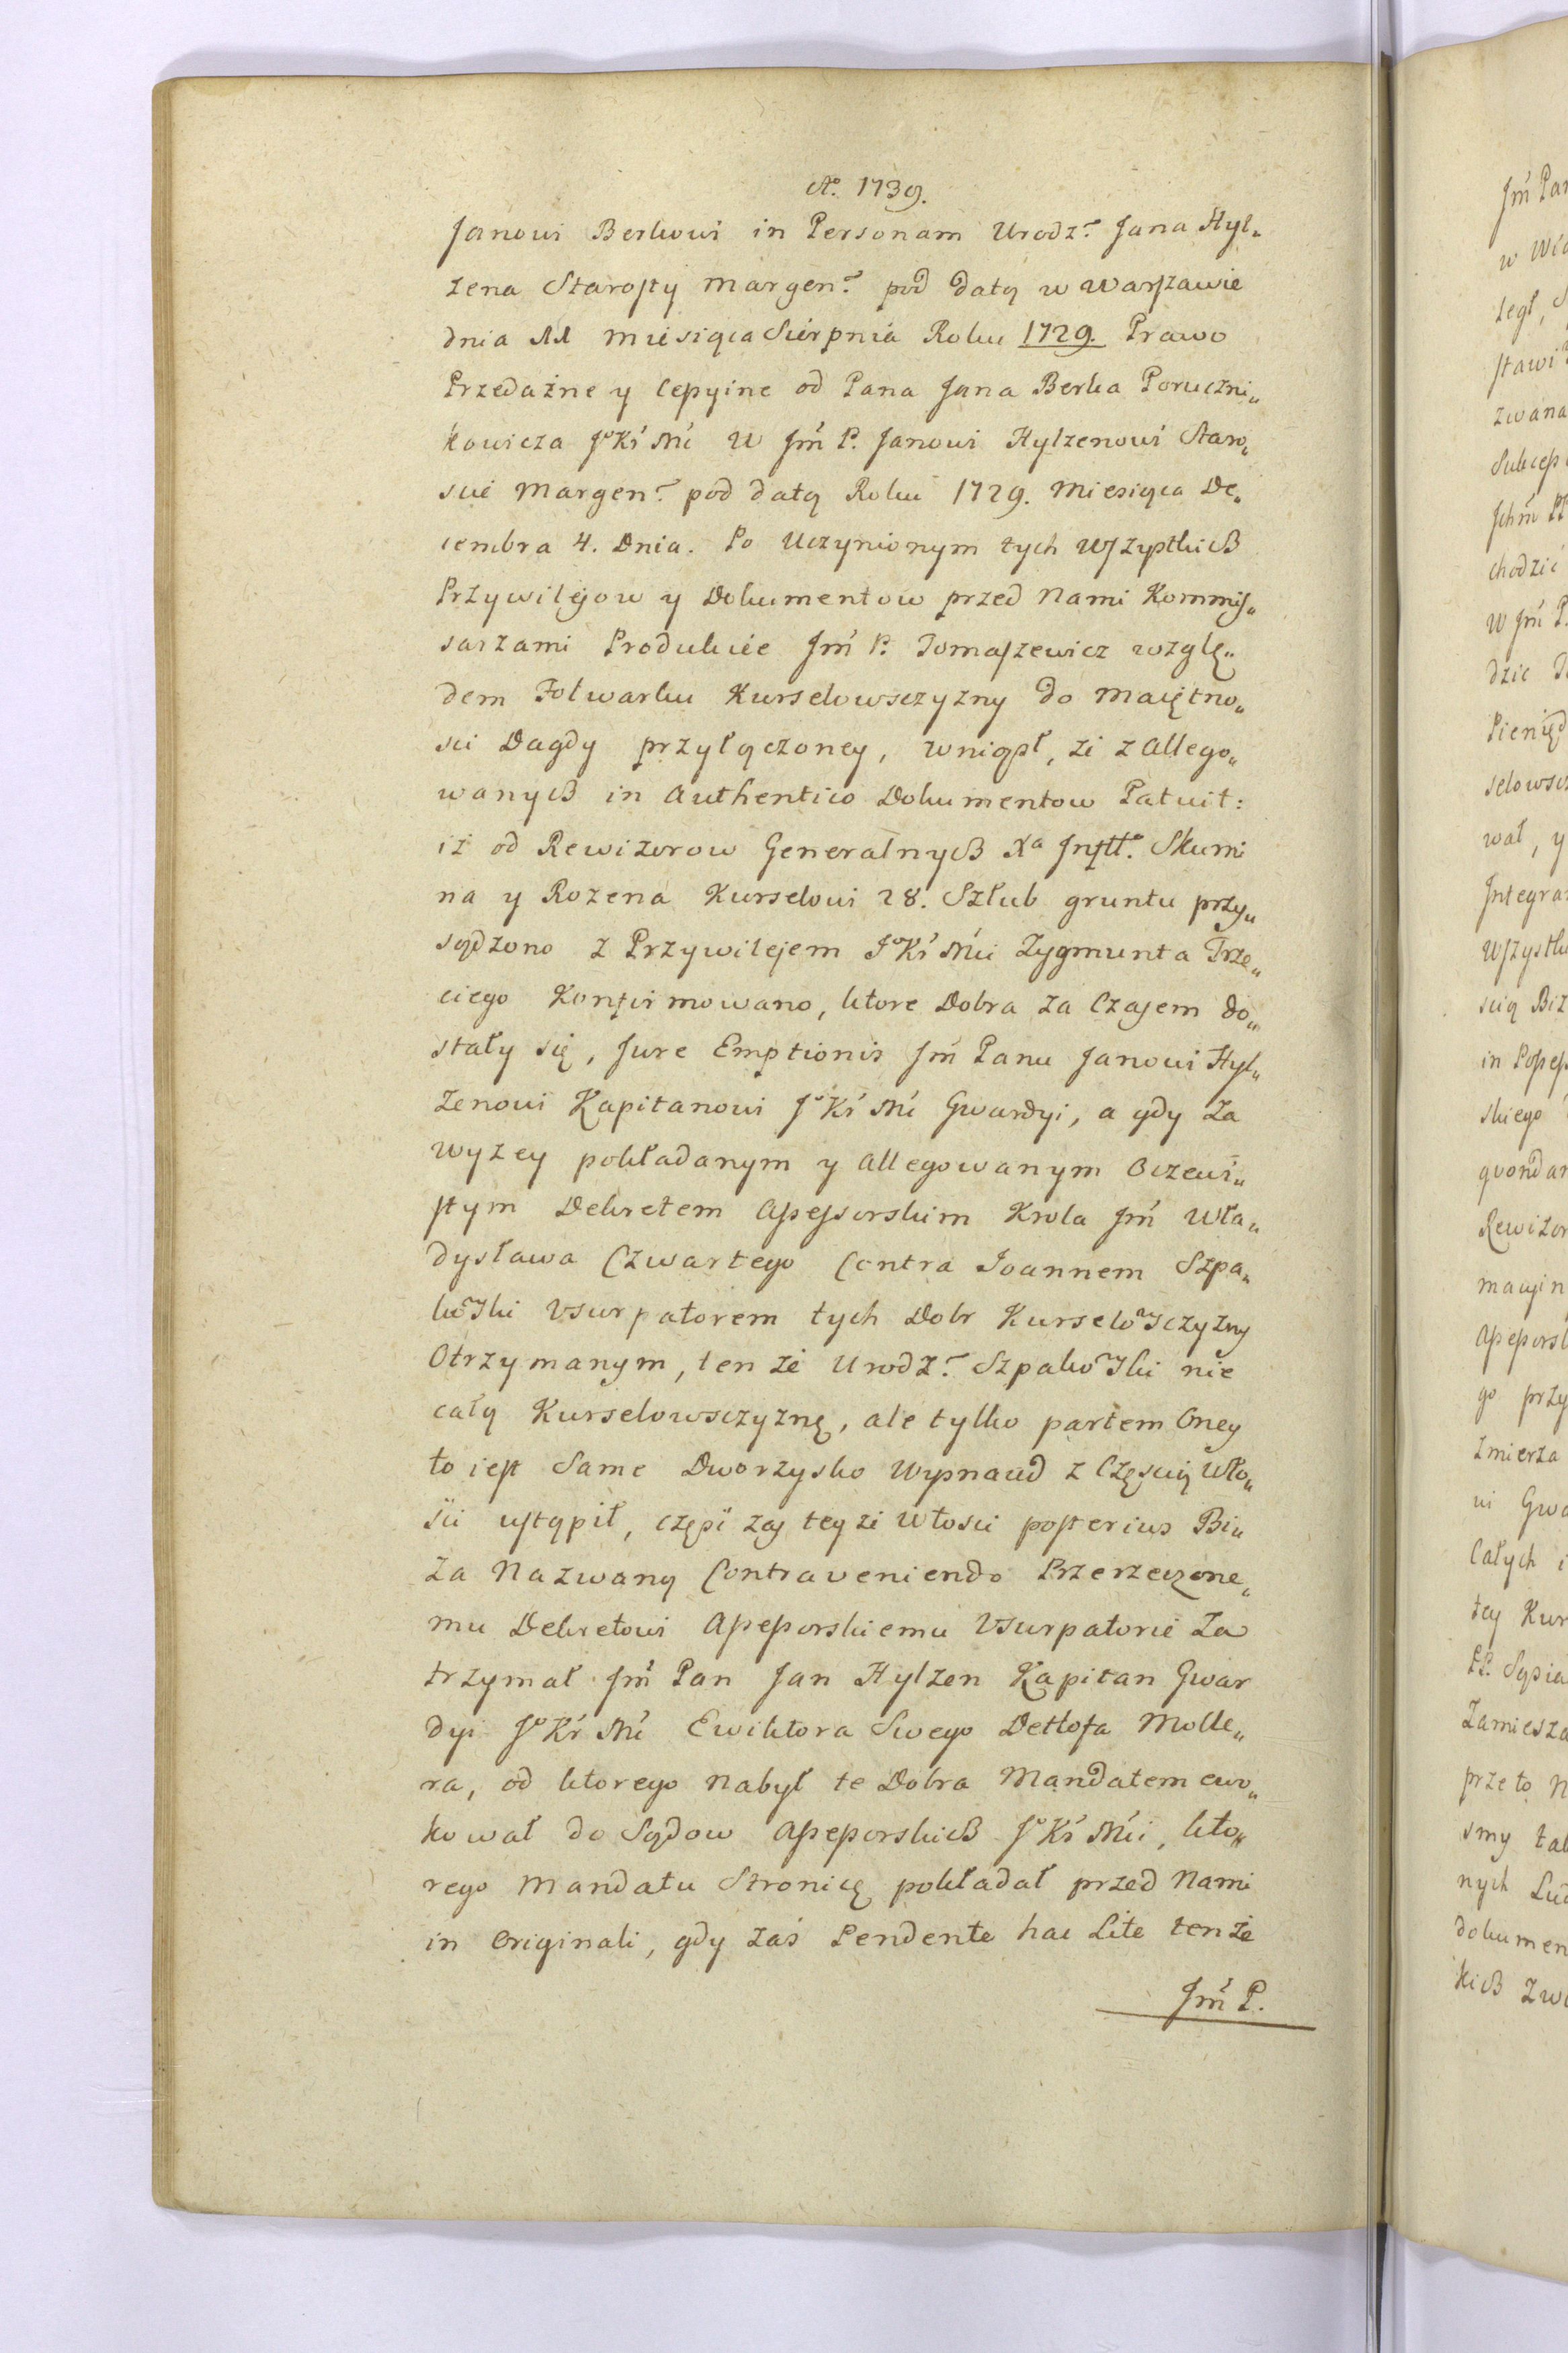 Ao. 1739.
Janowi Berkowi in Personam Urodz. Jana Hyl„
zena Starosty Margen. pod datą w Warszawie
dnia 11 Miesiąca Sierpnia Roku 1729. Prawo
Przedażne y Cessyine od Pana Jana Berka Poruczni„
kowicza JoKr Mci W Jm P. Janowi Hylzenowi Staro„
scie Margen. pod datą Roku 1729. Miesiąca De„
cembra 4. Dnia. Po Uczynionym tych Wszystkich
Przywilejow y Dokumentow przed Nami Kommis„
sarzami Produkcie Jm P. Tomaszewicz wzglę„
dem Folwarku Kurselowsczyzny do Maiętno„
sci Dagdy przyłączoney, wniosł, zi z Allego„
wanych in Authentico Dokumentow Patuit:
iż od Rewizorow Generalnych Xa Inflt. Skumi
na y Rozena Kurselowi 28. Szłub gruntu przy„
sądzono z Przywilejem JoKr Mci Zygmunta Trze„
ciego Konfirmowano, ktore Dobra za Czasem do„
stały się, Jure Emptionis Jm Panu Janowi Hyl„
zenowi Kapitanowi JoKr Mci Gwardyi, a gdy za
wyzey pokładanym y allegowanym Oczewi„
stym Dekretem Assessorskim Krola Jm Wła„
dysława Czwartego Contra Joannem Szpa„
kowski Usurpatorem tych Dobr Kurselowsczyzny
Otrzymanym, ten że Urodz. Szpakowski nie
całą Kurselowsczyznę, ale tylko partem Oney
to iest Same Dworzysko Wypnaud z Częscią Wło„
sci ustąpił, częsc zas teyzi Włosci posterius Bi„
za Nazwaną Contraveniendo Przerzeczone„
mu Dekretowi Assessorskiemu Usurpatorie Za
trzymał Jm Pan Jan Hylzen Kapitan Gwar
dyi JoKr Mci Ewiktora Swego Detlofa Molle„
ra, od ktorego Nabył te Dobra Mandatem ewo„
kował do Sądow Assessorskich JoKr Mci, kto„
rego Mandatu Stronicę pokładał przed Nami
in Originali, gdy zaś Pendente hac Lite tenże
Jm P.